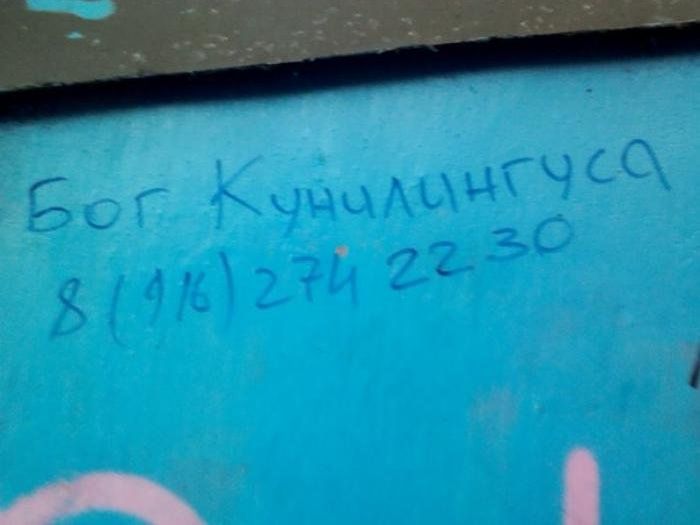 Бог Кунилингуса
8 (916) 274 22 30